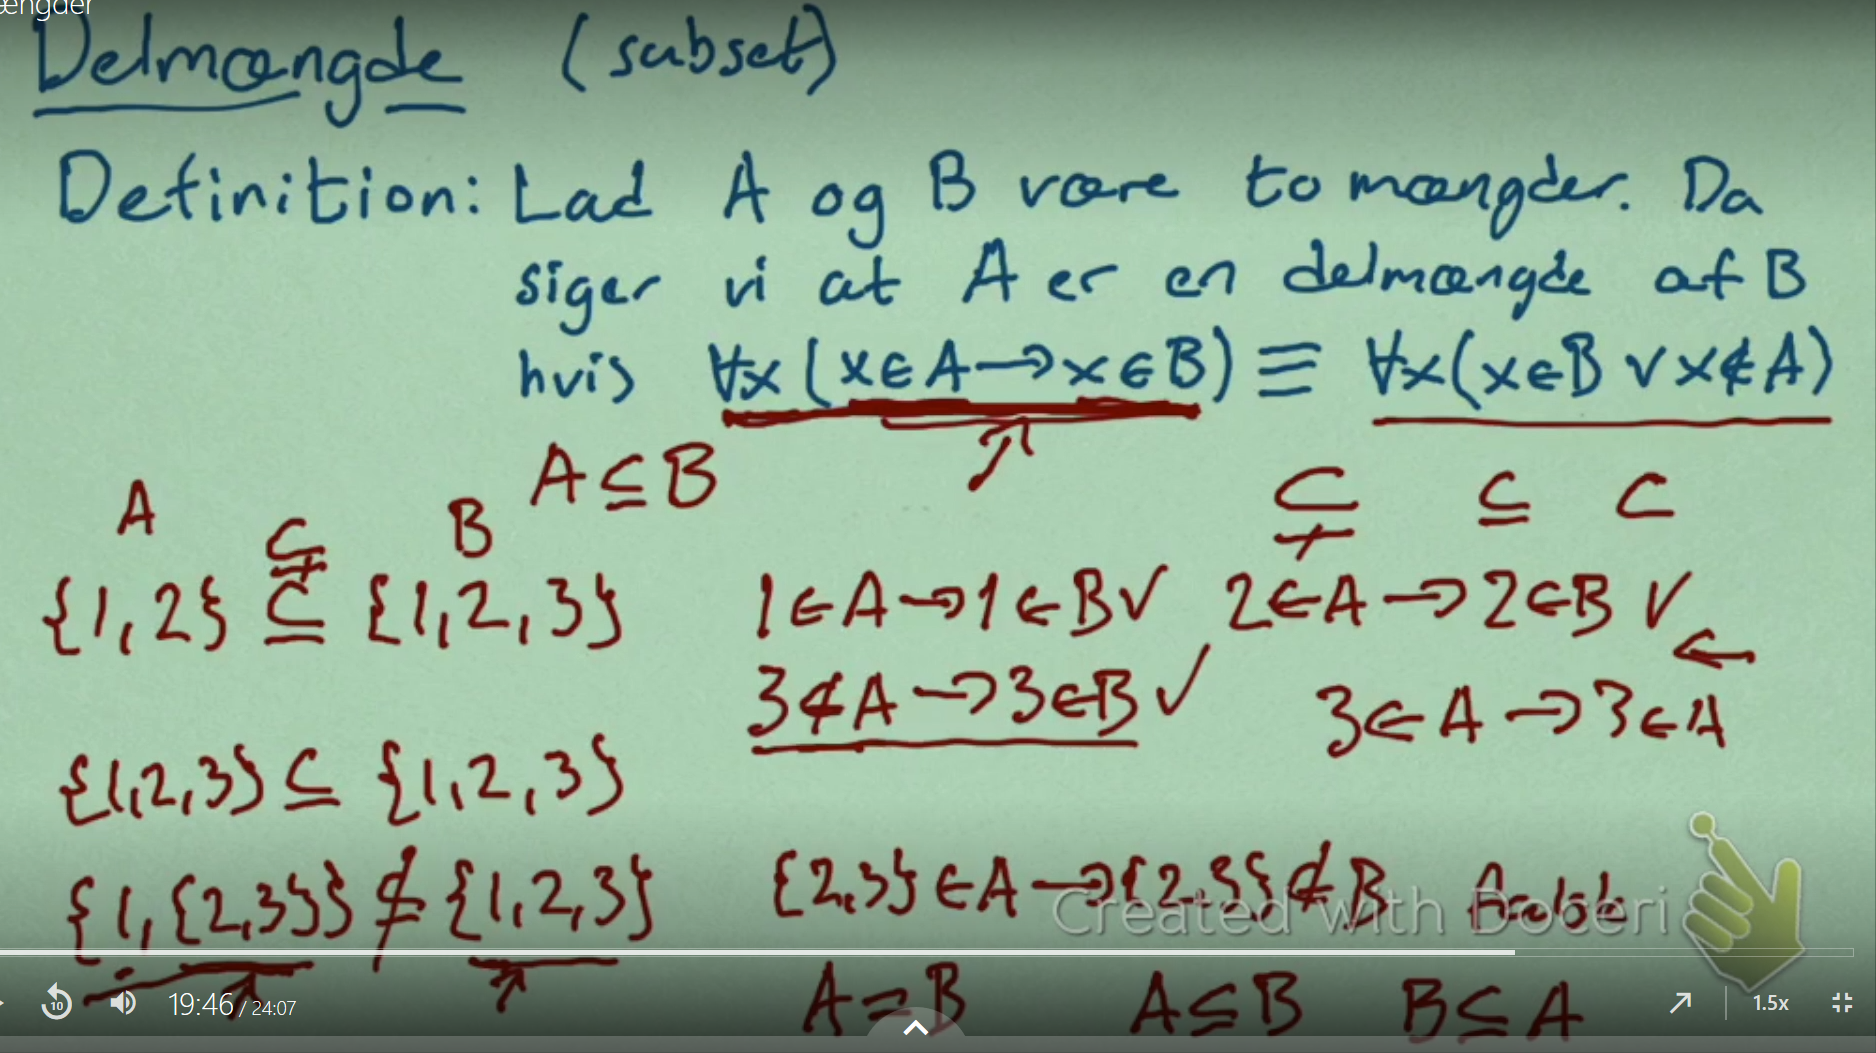 ængder
Delmængde (subset)
Definition: Lad A og B være to mængder. Da
siger vi at A er en delmængde af B
hvis ∀x(x∈A→x∈B) ≡ ∀x(x∈B ∨ x∉A)
A⊆B
⊊ ⊆ ⊂
A ⊊ B
{1,2} ⊆ {1,2,3} 1∈A→1∈B✓ 2∈A→2∈B ✓ ←
3∉A→3∈B ✓ 3∈A→3∈A
{1,2,3} ⊆ {1,2,3}
{1,{2,3}} ⊈ {1,2,3} {2,3}∈A→{2,3}∉B
Created with Doceri
A=B A⊆B B⊆A
10 19:46 / 24:07 1.5x